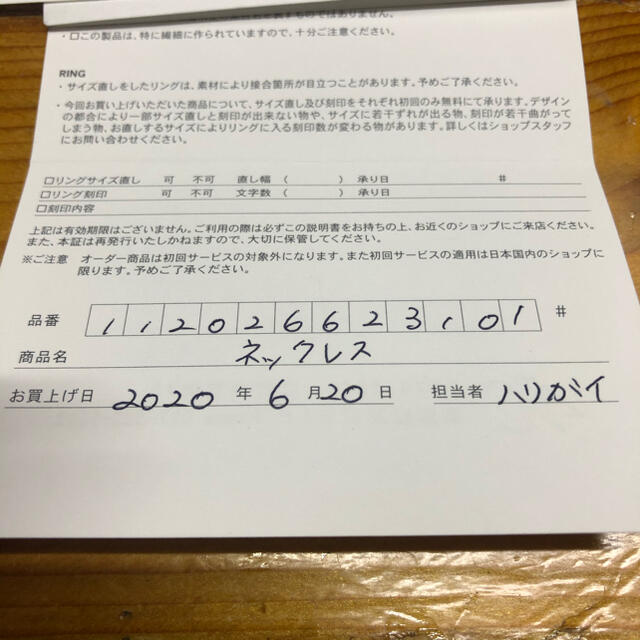 ・□この製品は、特に繊細に作られていますので、十分ご注意ください。
RING
・サイズ直しをしたリングは、素材により接合箇所が目立つことがあります。予めご了承ください。
・今回お買い上げいただいた商品について、サイズ直し及び刻印をそれぞれ初回のみ無料にて承ります。デザイン
の都合により一部サイズ直しと刻印が出来ない物や、サイズに若干ずれが出る物、刻印が若干曲がって
しまう物、お直しするサイズによりリングに入る刻印数が変わる物があります。詳しくはショップスタッフ
にお問い合わせください。
□リングサイズ直し 可 不可 直し幅 ( ) 承り日 #
□リング刻印 可 不可 文字数 ( ) 承り日
□刻印内容
上記は有効期限はございません。ご利用の際は必ずこの説明書をお持ちの上、お近くのショップにご来店ください。
また、本証は再発行いたしかねますので、大切に保管してください。
※ご注意 オーダー商品は初回サービスの対象外になります。また初回サービスの適用は日本国内のショップに
限ります。予めご了承ください。
品番 112026623101 #
商品名 ネックレス
お買上げ日 2020 年 6 月 20 日 担当者 ハリガイ